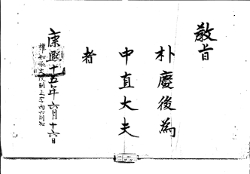 敎旨
朴慶後爲
中直大夫
者
康熙十五年六月十六日